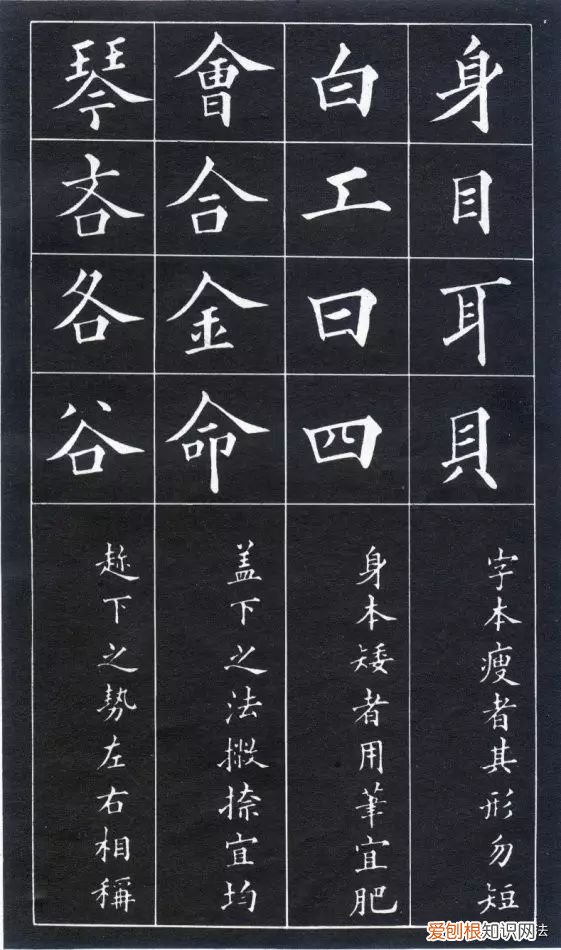 身目耳貝
字本瘦者其形勿短
白工曰四
身本矮者用筆宜肥
會合金命
蓋下之法撇捺宜均
琴吝各谷
趂下之勢左右相稱
爱刨根知识网法